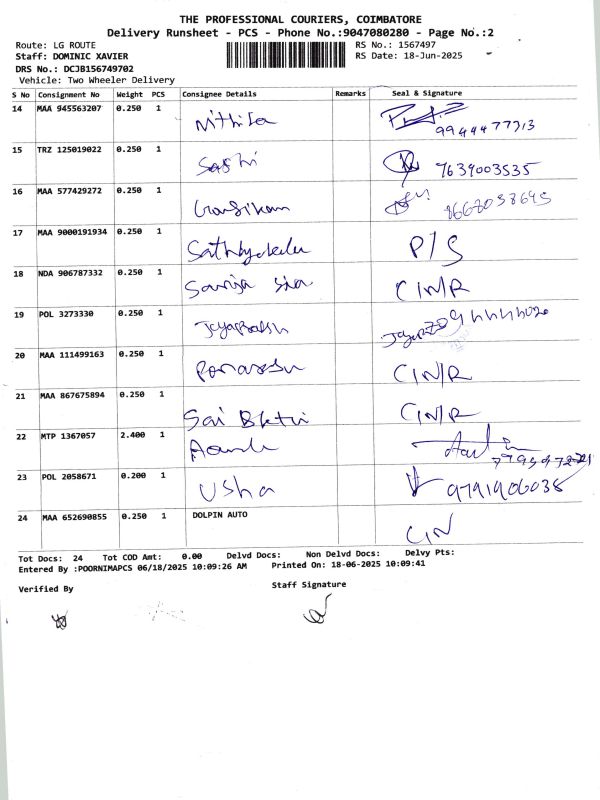 THE PROFESSIONAL COURIERS, COIMBATORE
Delivery Runsheet - PCS - Phone No.:9047080280 - Page No.:2
Route: LG ROUTE
RS No.: 1567497
Staff: DOMINIC XAVIER
RS Date: 18-Jun-2025
DRS No.: DCJB156749702
Vehicle: Two Wheeler Delivery
S No Consignment No Weight PCS Consignee Details Remarks Seal & Signature
14 MAA 945563207 0.250 1 Nithila 9944477713
15 TRZ 125019022 0.250 1 Sashi 7639003535
16 MAA 577429272 0.250 1
17 MAA 9000191934 0.250 1 P/S
18 NDA 906787332 0.250 1 CIN/R
19 POL 3273330 0.250 1
20 MAA 111499163 0.250 1 CIN/R
21 MAA 867675894 0.250 1 Sai CIN/R
22 MTP 1367057 2.400 1
23 POL 2058671 0.200 1 Usha 9791906038
24 MAA 652690855 0.250 1 DOLPIN AUTO CIN
Tot Docs: 24 Tot COD Amt: 0.00 Delvd Docs: Non Delvd Docs: Delvy Pts:
Entered By :POORNIMAPCS 06/18/2025 10:09:26 AM Printed On: 18-06-2025 10:09:41
Verified By Staff Signature